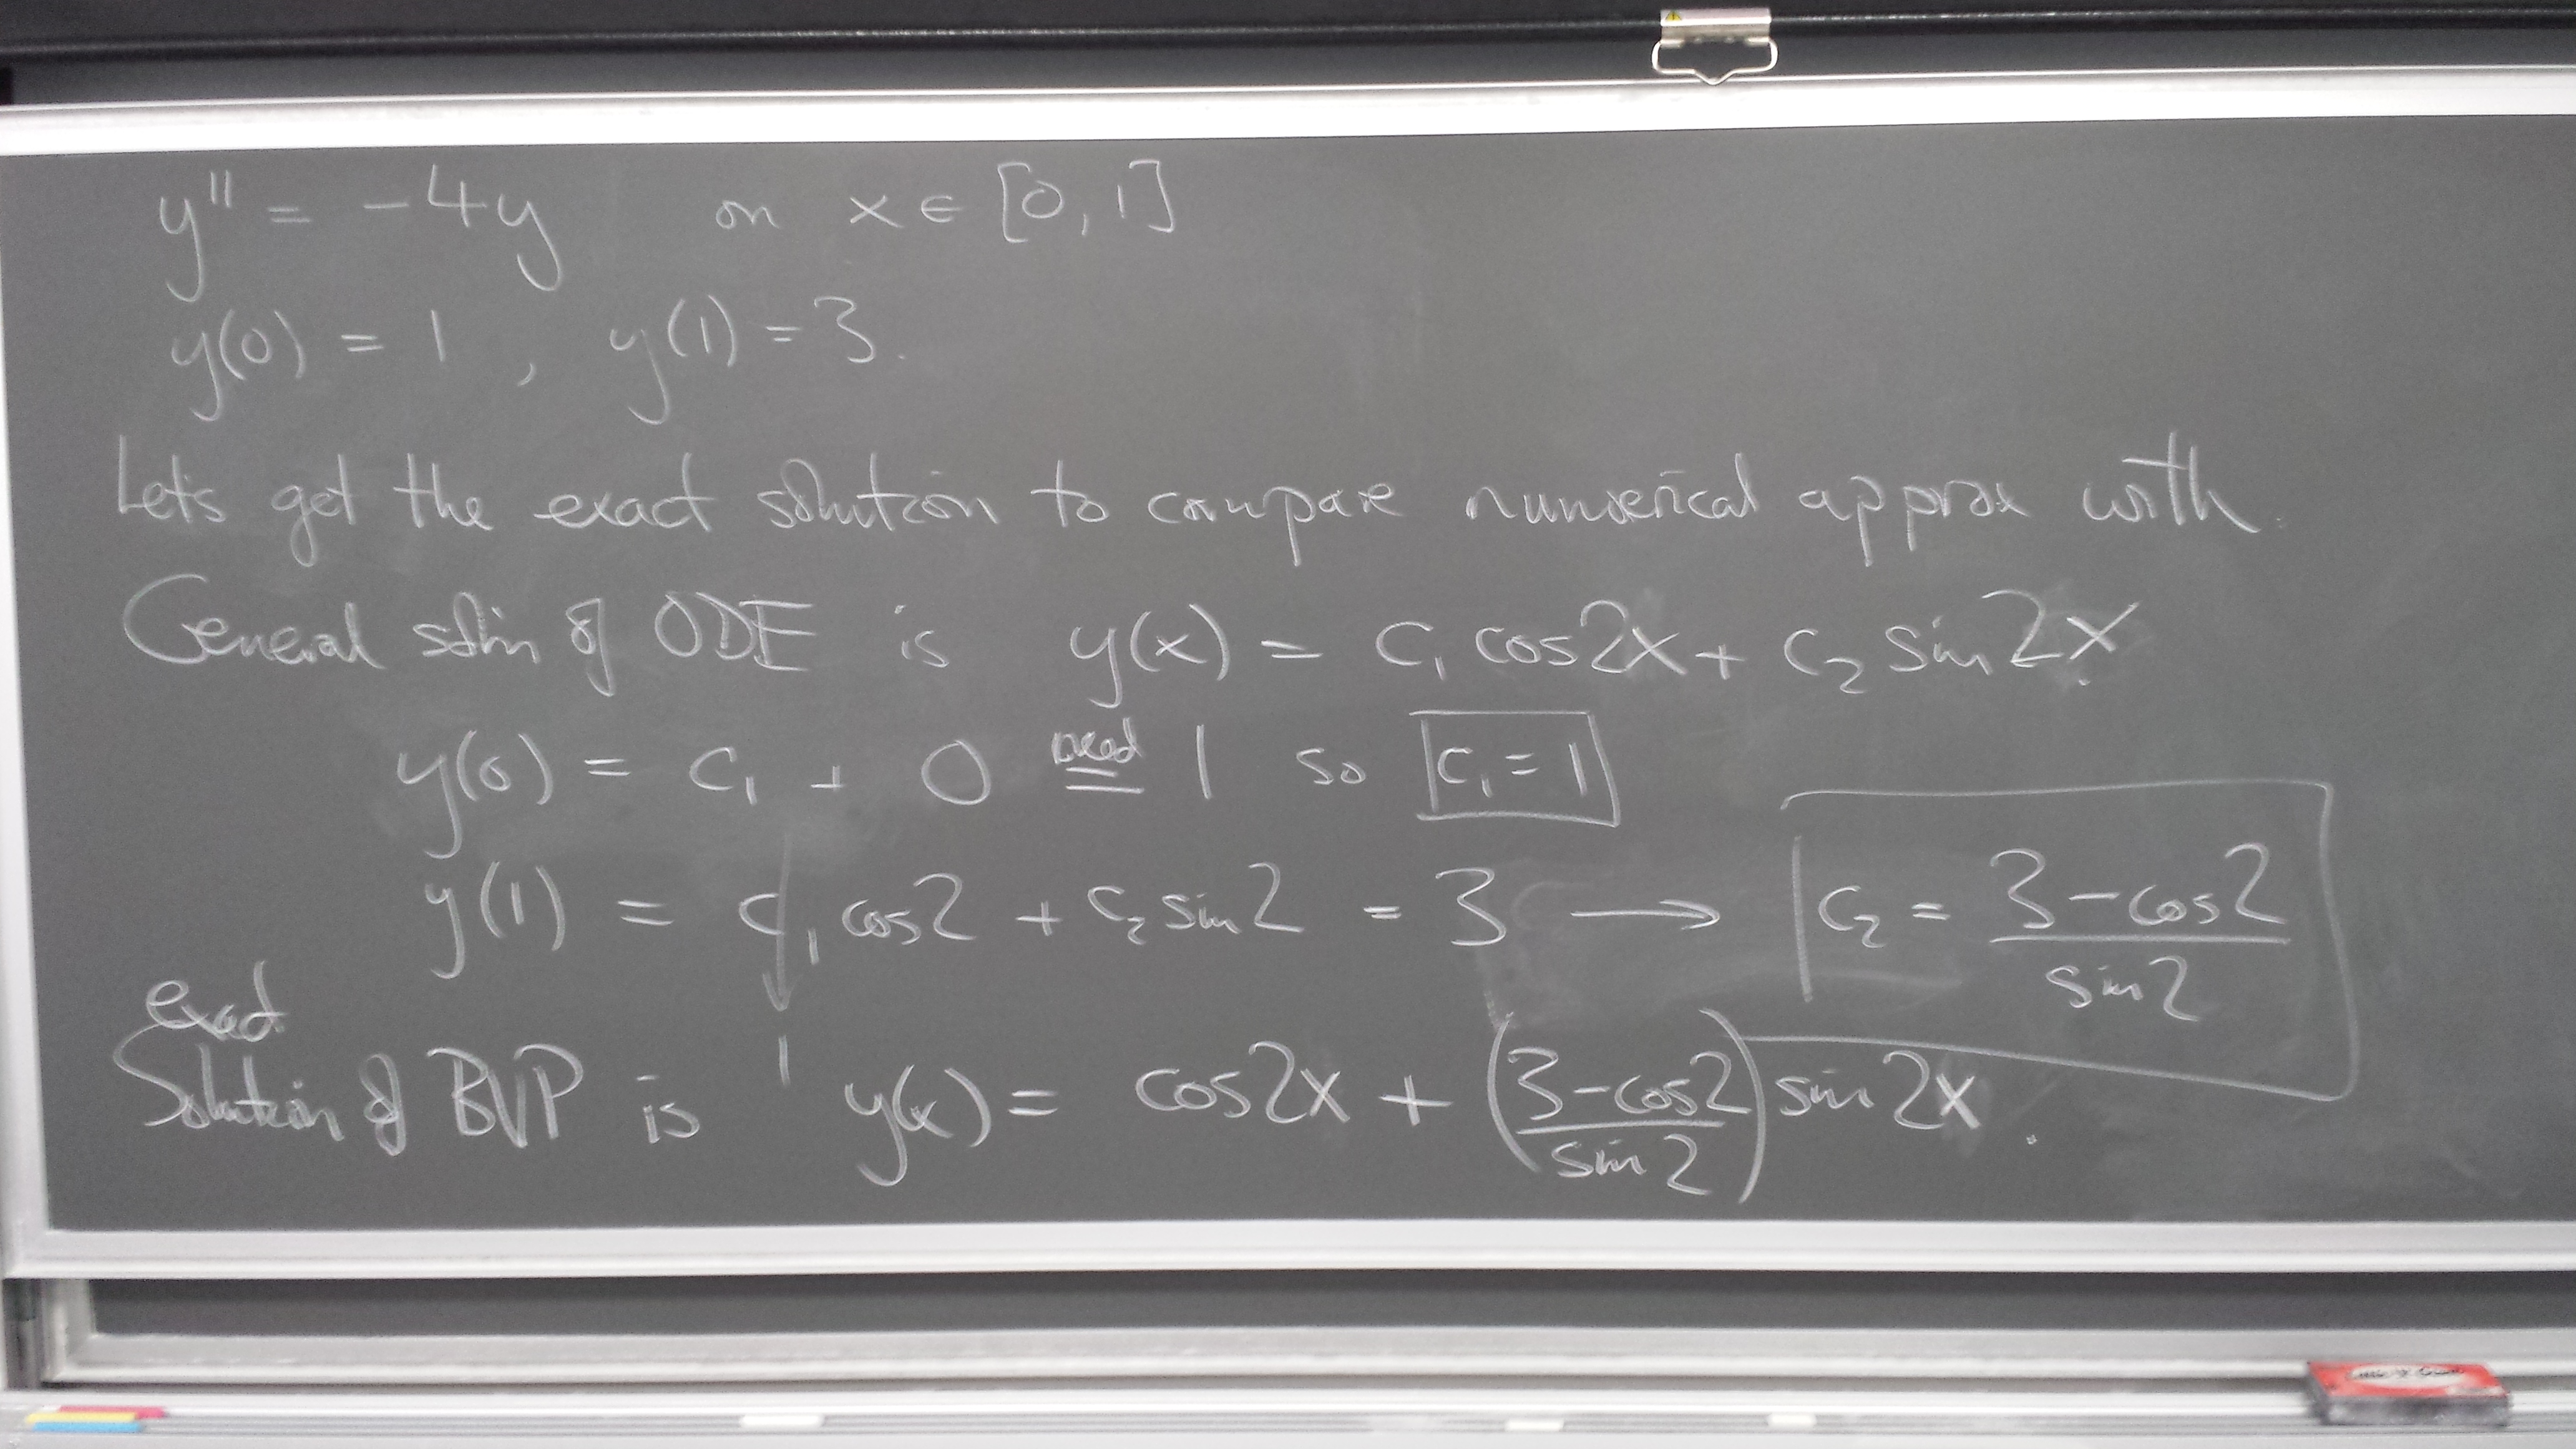 y'' = -4y on x ∈ [0, 1]
y(0) = 1 , y(1) = 3.
Let's get the exact solution to compare numerical approx with.
General soln of ODE is y(x) = c₁ cos2x + c₂ sin2x
y(0) = c₁ + 0 need = 1 so c₁ = 1
y(1) = c₁ cos2 + c₂ sin2 = 3 → c₂ = (3-cos2)/sin2
1
exact
Solution of BVP is y(x) = cos2x + ((3-cos2)/sin2) sin2x.